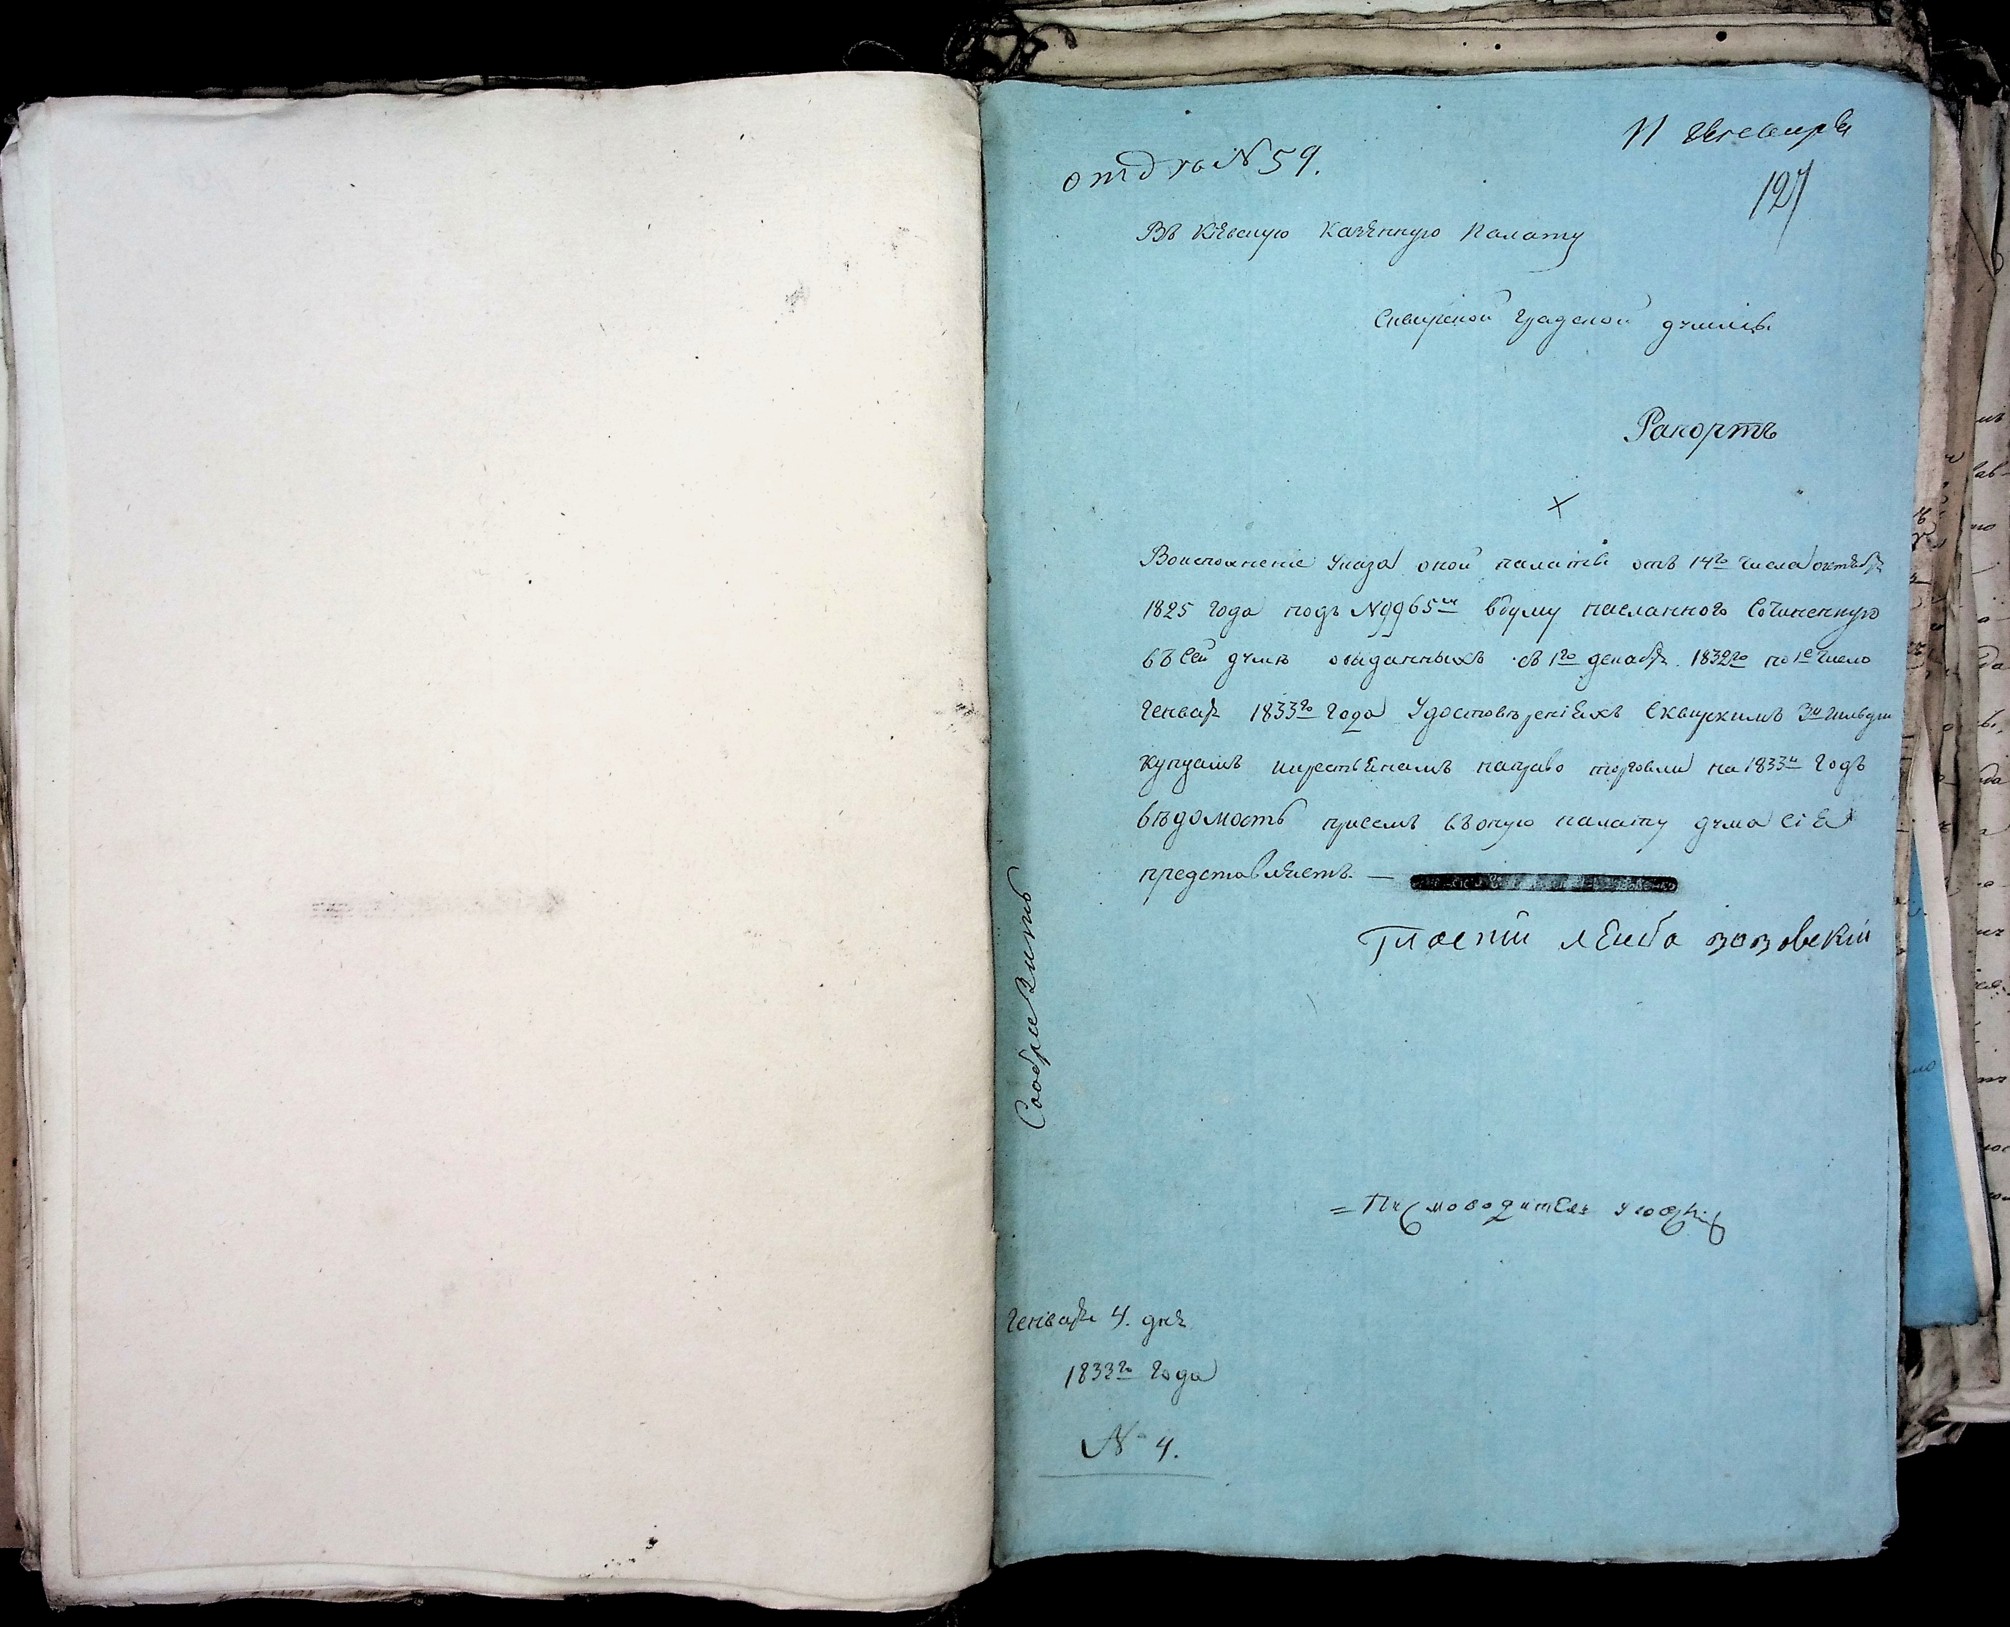 11 Генваря
отд по N 59.
127
Въ Кіевскую Казенную Палату
Сквирской Градской думы
Рапортъ
Воисполненіе Указа оной палаты отъ 14го числа октября
1825 года подъ N 9965м вдуму посланного Сочиненную
въ сей думѣ овыданныхъ съ 1го декабря 1832го по 1е число
Генваря 1833го года Удостовѣреніяхъ Сквирскимъ 3й гильдіи
купцамъ ихрестьянамъ направо торговли на 1833й годъ
вѣдомость присемъ въоную палату дума сія
представляетъ. —
Гласній Лейба Розовскій
Сообразить
= Писмоводитель
Генваря 4. дня
1833го года
N 4.